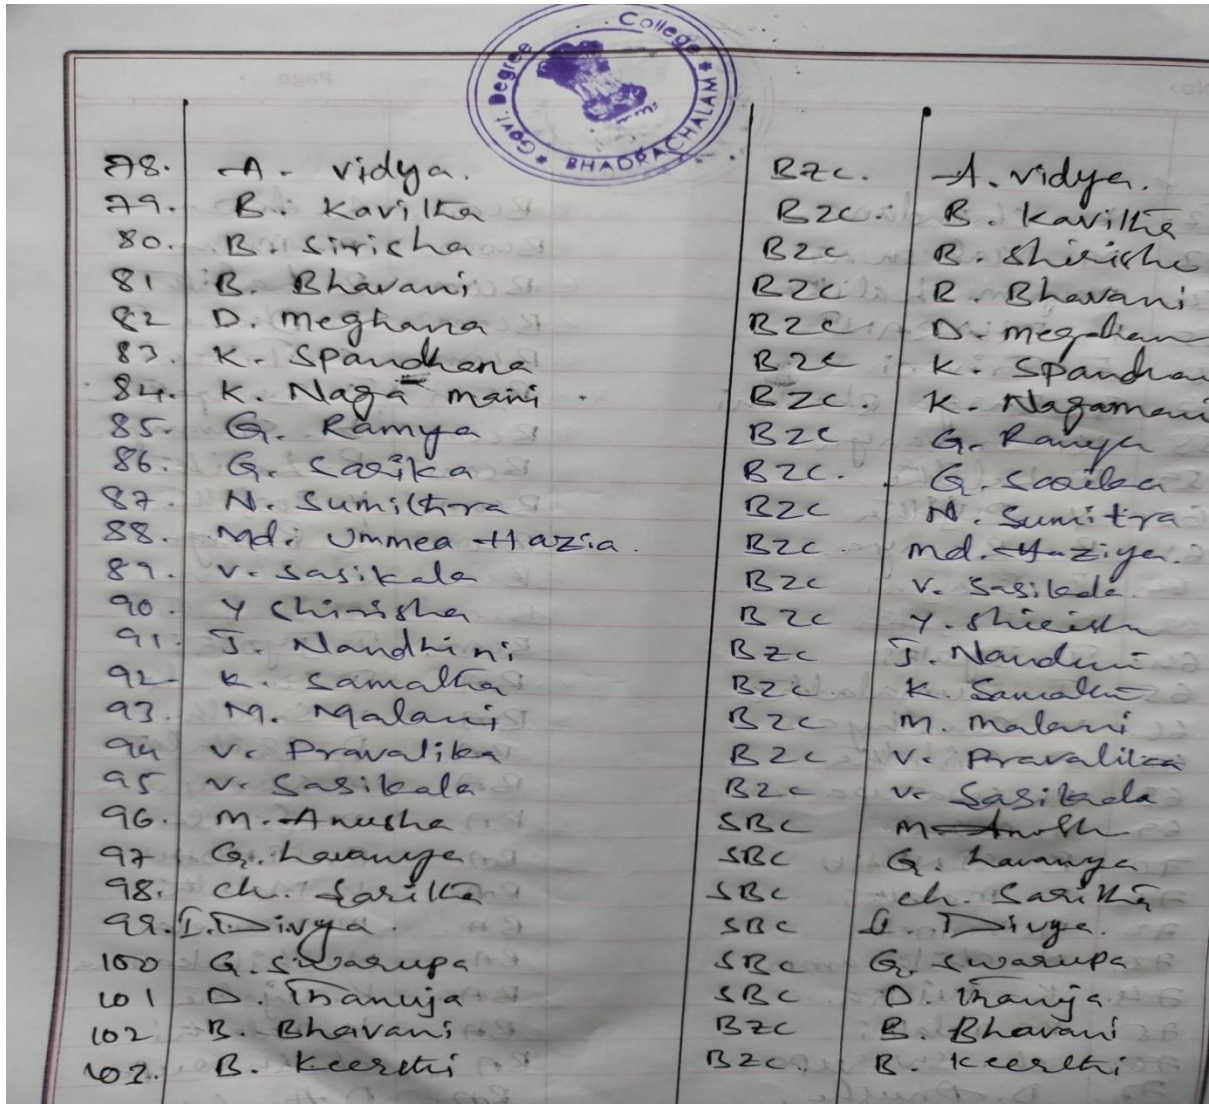 Govt. Degree College
BHADRACHALAM
78. A. Vidya. BZC. A. Vidya.
79. B. Kavitha BZC. B. Kavitha
80. B. Sirisha BZC B. Shirisha
81 B. Bhavani BZC B. Bhavani
82 D. Meghana BZC D. Megahan
83. K. Spandhana BZC K. Spandhan
84. K. Naga mani. BZC. K. Nagamani
85. G. Ramya BZC G. Ramya
86. G. Sarika BZC. G. Sarika
87 N. Sumithra BZC N. Sumitra
88. Md. Ummea Hazia. BZC. Md. Haziya.
89. V. Sasikala BZC V. Sasikala.
90. Y Shirisha BZC Y. Shirisha
91. J. Nandhini BZC J. Nandini
92. K. Samatha BZC. K. Samatha
93. M. Malani BZC M. Malani
94 V. Pravalika BZC V. Pravalikaa
95 V. Sasikala BZC V. Sasikala
96. M. Anusha SBC M
97 G. Lavanya SBC G. Lavanya
98. Ch. Saritha SBC Ch. Saritha
99. I. Divya. SBC Divya.
100 G. Swarupa SBC G. Swarupa
101 D. Thanuja SBC D. Thanuja
102 B. Bhavani BZC B. Bhavani
103. B. Keerthi BZC. B. Keerthi